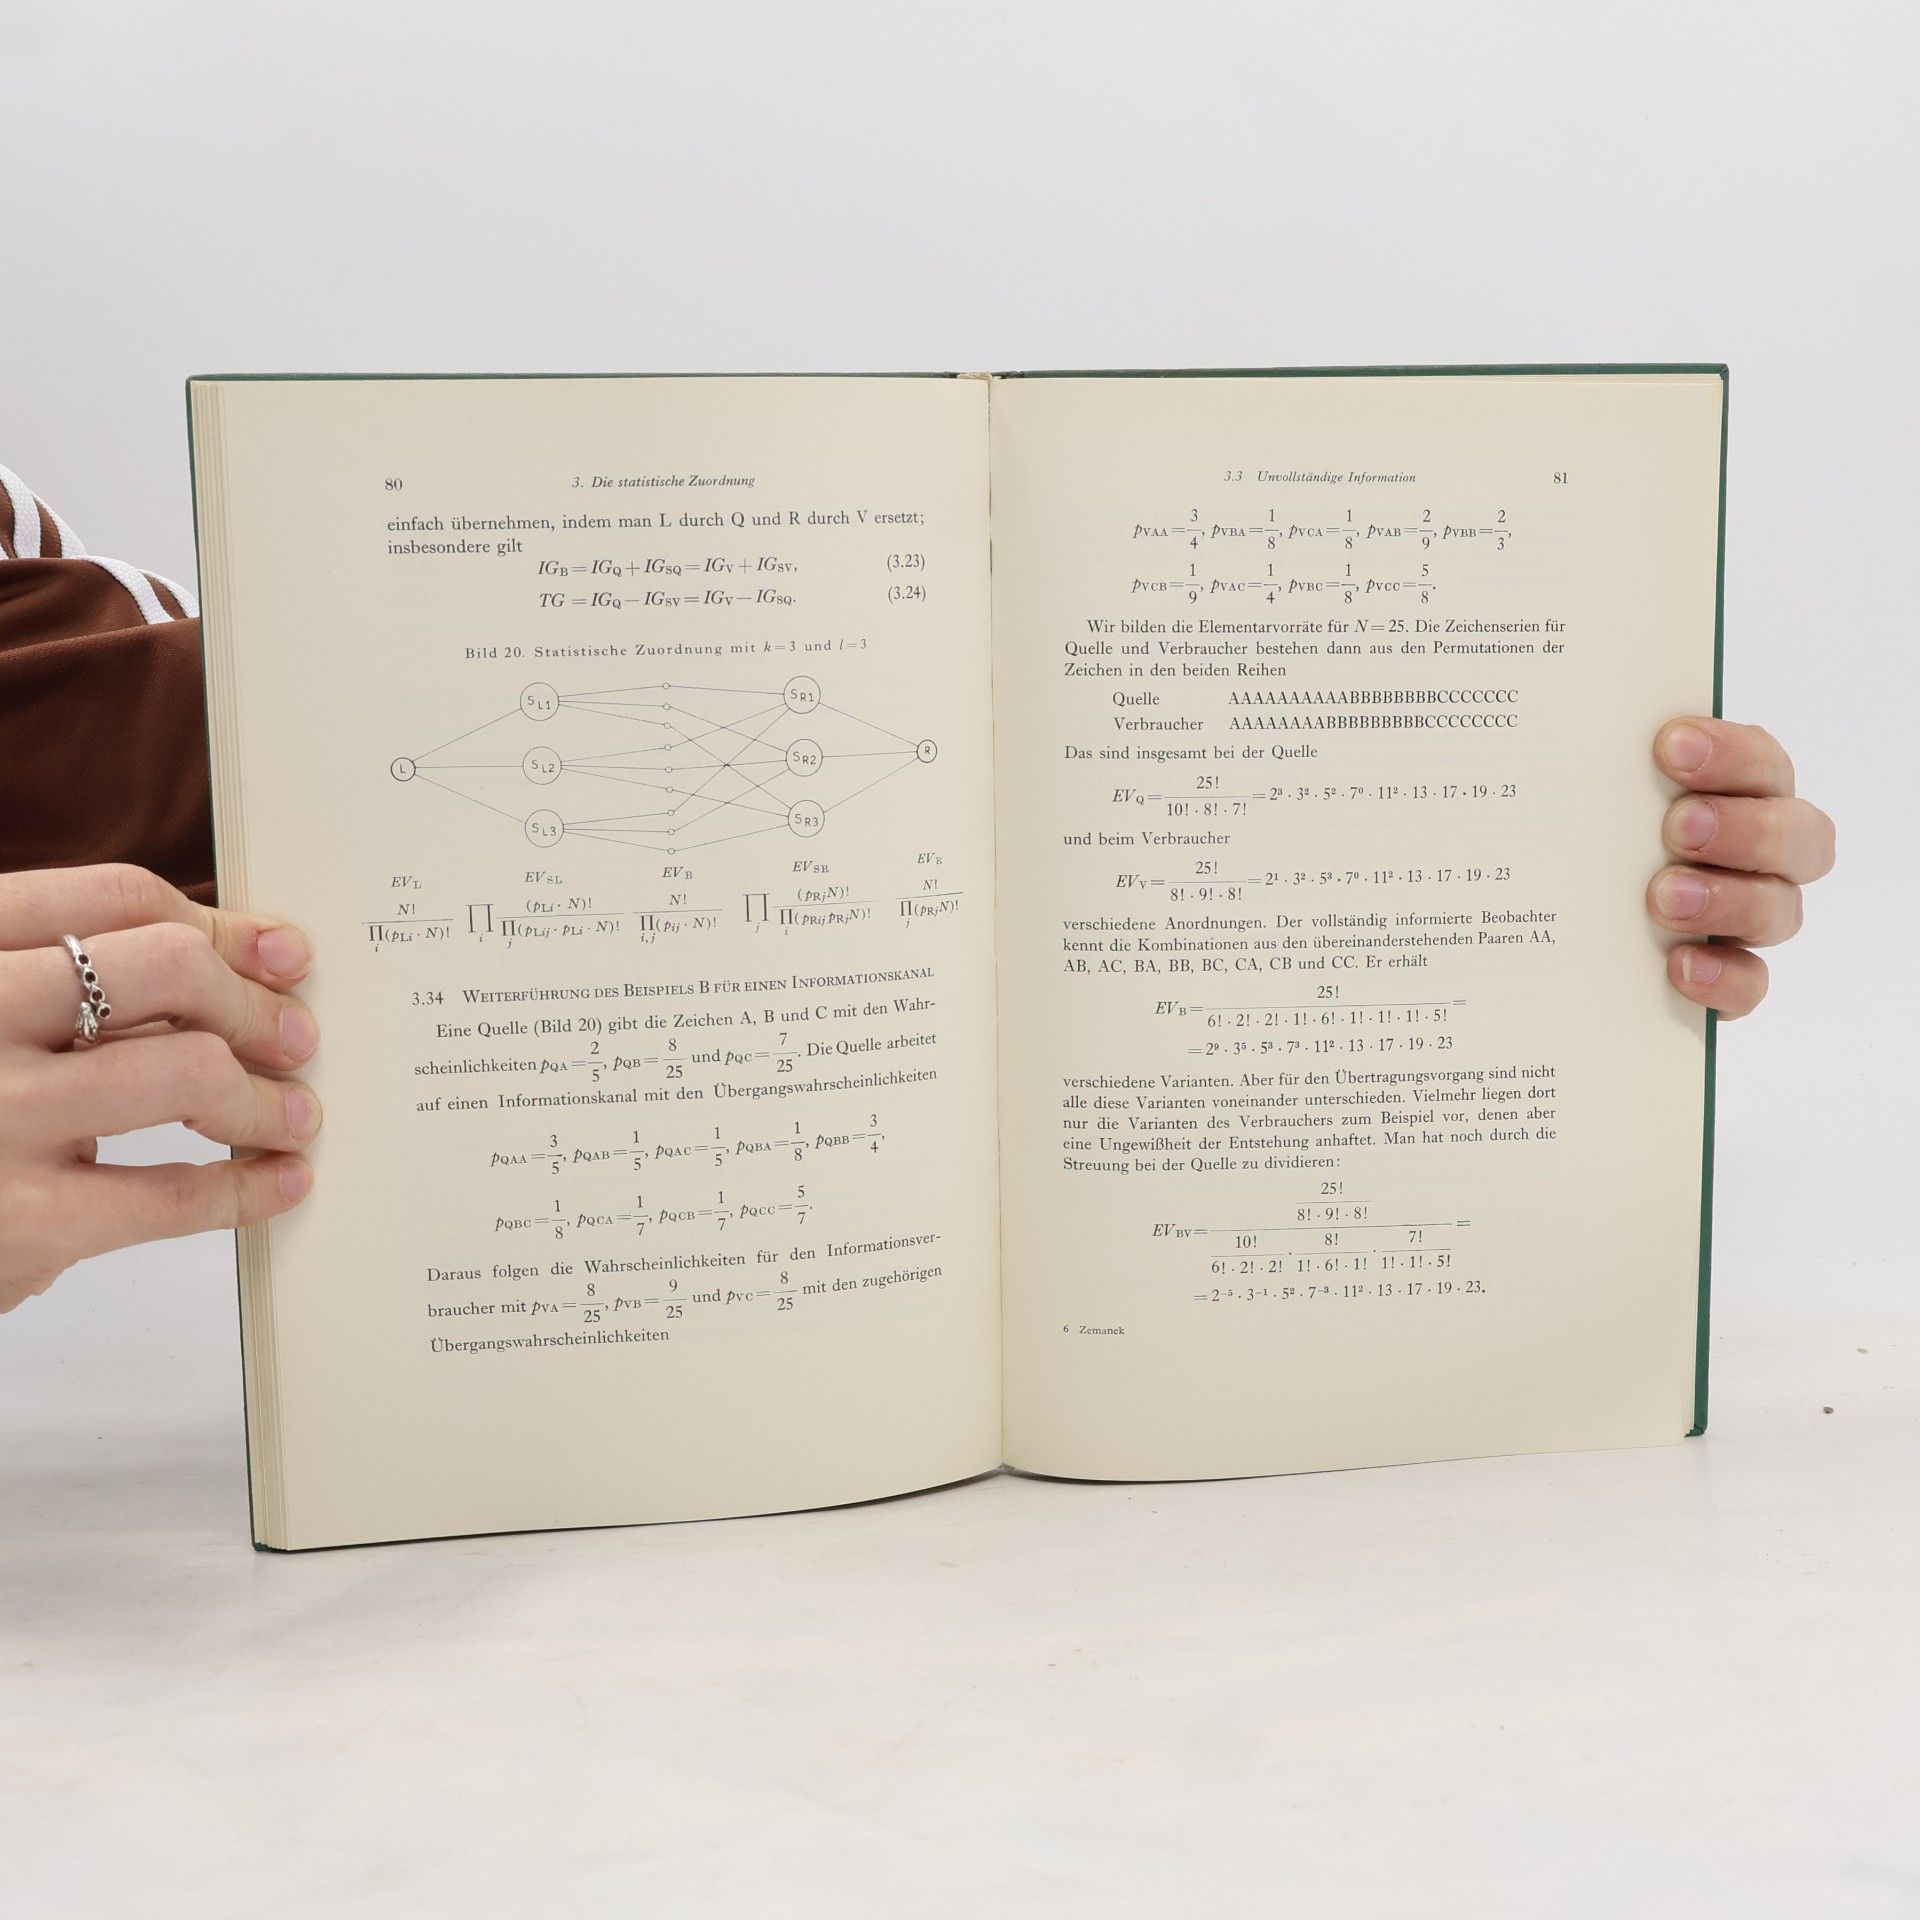 80 3. Die statistische Zuordnung
einfach übernehmen, indem man L durch Q und R durch V ersetzt;
insbesondere gilt
IG_B = IG_Q + IG_SQ = IG_V + IG_SV, (3.23)
TG = IG_Q − IG_SV = IG_V − IG_SQ. (3.24)
Bild 20. Statistische Zuordnung mit k = 3 und l = 3
S_L1 S_R1
L S_L2 S_R2 R
S_L3 S_R3
EV_L EV_SL EV_B EV_SR EV_R
N! / ∏_i (p_Li · N)! ∏_i (p_Li · N)! / ∏_j (p_Lij · p_Li · N)! N! / ∏_i,j (p_ij · N)! ∏_j (p_Rj N)! / ∏_i (p_Rij p_Rj N)! N! / ∏_j (p_Rj N)!
3.34 WEITERFÜHRUNG DES BEISPIELS B FÜR EINEN INFORMATIONSKANAL
Eine Quelle (Bild 20) gibt die Zeichen A, B und C mit den Wahr-
scheinlichkeiten p_QA = 2/5, p_QB = 8/25 und p_QC = 7/25. Die Quelle arbeitet
auf einen Informationskanal mit den Übergangswahrscheinlichkeiten
p_QAA = 3/5, p_QAB = 1/5, p_QAC = 1/5, p_QBA = 1/8, p_QBB = 3/4,
p_QBC = 1/8, p_QCA = 1/7, p_QCB = 1/7, p_QCC = 5/7.
Daraus folgen die Wahrscheinlichkeiten für den Informationsver-
braucher mit p_VA = 8/25, p_VB = 9/25 und p_VC = 8/25 mit den zugehörigen
Übergangswahrscheinlichkeiten
3.3 Unvollständige Information 81
p_VAA = 3/4, p_VBA = 1/8, p_VCA = 1/8, p_VAB = 2/9, p_VBB = 2/3,
p_VCB = 1/9, p_VAC = 1/4, p_VBC = 1/8, p_VCC = 5/8.
Wir bilden die Elementarvorräte für N = 25. Die Zeichenserien für
Quelle und Verbraucher bestehen dann aus den Permutationen der
Zeichen in den beiden Reihen
Quelle AAAAAAAAAABBBBBBBBCCCCCCC
Verbraucher AAAAAAAABBBBBBBBBCCCCCCCC
Das sind insgesamt bei der Quelle
EV_Q = 25! / (10! · 8! · 7!) = 2³ · 3² · 5² · 7⁰ · 11² · 13 · 17 · 19 · 23
und beim Verbraucher
EV_V = 25! / (8! · 9! · 8!) = 2¹ · 3² · 5³ · 7⁰ · 11² · 13 · 17 · 19 · 23
verschiedene Anordnungen. Der vollständig informierte Beobachter
kennt die Kombinationen aus den übereinanderstehenden Paaren AA,
AB, AC, BA, BB, BC, CA, CB und CC. Er erhält
EV_B = 25! / (6! · 2! · 2! · 1! · 6! · 1! · 1! · 1! · 5!) =
= 2⁹ · 3⁵ · 5³ · 7³ · 11² · 13 · 17 · 19 · 23
verschiedene Varianten. Aber für den Übertragungsvorgang sind nicht
alle diese Varianten voneinander unterschieden. Vielmehr liegen dort
nur die Varianten des Verbrauchers zum Beispiel vor, denen aber
eine Ungewißheit der Entstehung anhaftet. Man hat noch durch die
Streuung bei der Quelle zu dividieren:
EV_BV = (25! / (8! · 9! · 8!)) / (10! / (6! · 2! · 2!) · 8! / (1! · 6! · 1!) · 7! / (1! · 1! · 5!)) =
= 2⁻⁵ · 3⁻¹ · 5² · 7⁻³ · 11² · 13 · 17 · 19 · 23.
6 Zemanek